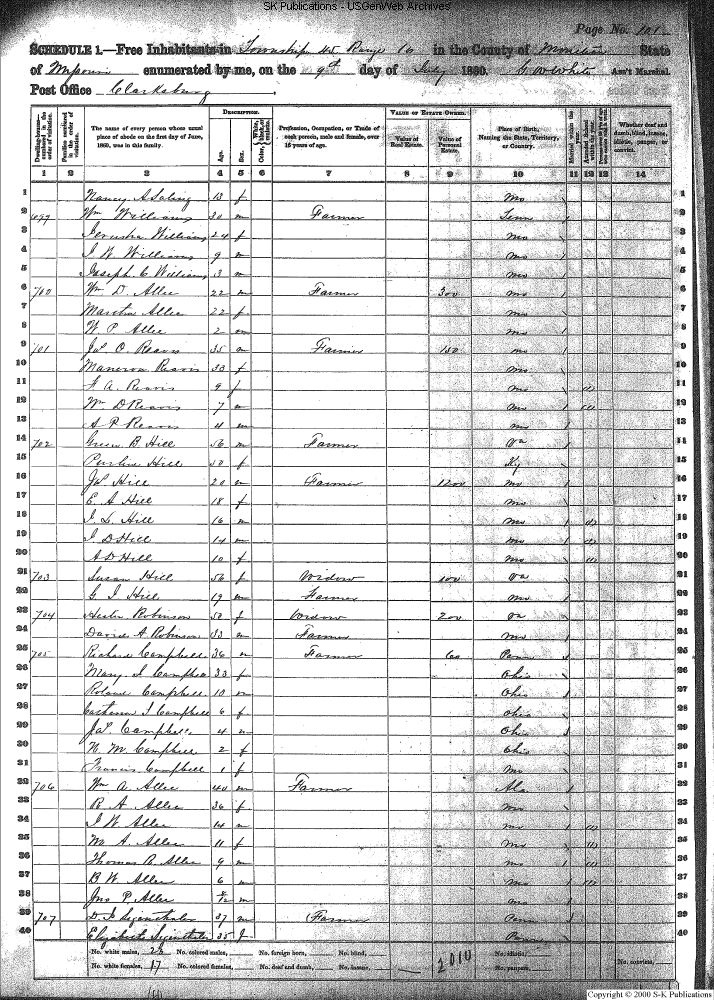 SK Publications - USGenWeb Archives
Page No. 101
SCHEDULE 1.—Free Inhabitants in Township 45 Range 16 in the County of Moniteau State
of Missouri enumerated by me, on the 9th day of July 1860. C W White Ass't Marshal.
Post Office Clarksburg
Dwelling-houses— numbered in the order of visitation.
Families numbered in the order of visitation.
The name of every person whose usual place of abode on the first day of June, 1860, was in this family.
DESCRIPTION.
Age.
Sex.
Color, White, black, or mulatto.
Profession, Occupation, or Trade of each person, male and female, over 15 years of age.
VALUE OF ESTATE OWNED.
Value of Real Estate.
Value of Personal Estate.
Place of Birth, Naming the State, Territory, or Country.
Married within the year.
Attended School within the year.
Whether deaf and dumb, blind, insane, idiotic, pauper, or convict.
1 2 3 4 5 6 7 8 9 10 11 12 13 14
1 Nancy A Saling 13 f Mo 1
2 699 Wm Williams 30 m Farmer Tenn / 2
3 Jerusha Williams 24 f Mo 3
4 J W Williams 9 m Mo 4
5 Joseph C Williams 3 m Mo 5
6 700 Wm D Allee 22 m Farmer 300 Mo 6
7 Allee 22 f Mo 7
8 W P Allee 2 m Mo 8
9 701 Jas O Reavis 35 m Farmer 150 Mo 9
10 Reavis 33 f Mo 10
11 A. Reavis 9 f Mo 11
12 Wm D Reavis 7 m Mo 12
13 A P Reavis 4 m Mo 13
14 702 Green B Hill 56 m Farmer Va 14
15 Hill 50 f Ky 15
16 Jas Hill 20 m Farmer 1200 Mo 16
17 E A Hill 18 f Mo 17
18 J L Hill 16 m Mo 18
19 J D Hill 14 m Mo 19
20 A D Hill 10 f Mo 20
21 703 Susan Hill 56 f Widow 100 Va 21
22 G J Hill 19 m Farmer Mo 22
23 704 Hester Robinson 50 f Widow 200 Va 23
24 David A Robinson 33 m Farmer Mo 24
25 705 Richard Campbell 36 m Farmer 60 Penn 25
26 Mary J Campbell 33 f Ohio 26
27 Roland Campbell 10 m Ohio 27
28 J Campbell 6 f Ohio 28
29 Jas Campbell 4 m Ohio 29
30 N. M Campbell 2 f Ohio 30
31 Francis Campbell 1 f Mo 31
32 706 Wm A Allee 40 m Farmer Ala 32
33 R A Allee 36 f Mo 33
34 J W Allee 14 m Mo 34
35 M A Allee 11 f Mo 35
36 Thomas B Allee 9 m Mo 36
37 B W Allee 6 m Mo 37
38 Jno P Allee m Mo 38
39 707 37 m Farmer Penn 39
40 Elizabeth 35 f Penn 40
No. white males, 23 No. colored males, No. foreign born, No. blind,
No. white females, 17 No. colored females, No. deaf and dumb, No. insane,
2010
No. idiotic,
No. paupers,
No. convicts,
Copyright © 2000 S-K Publications